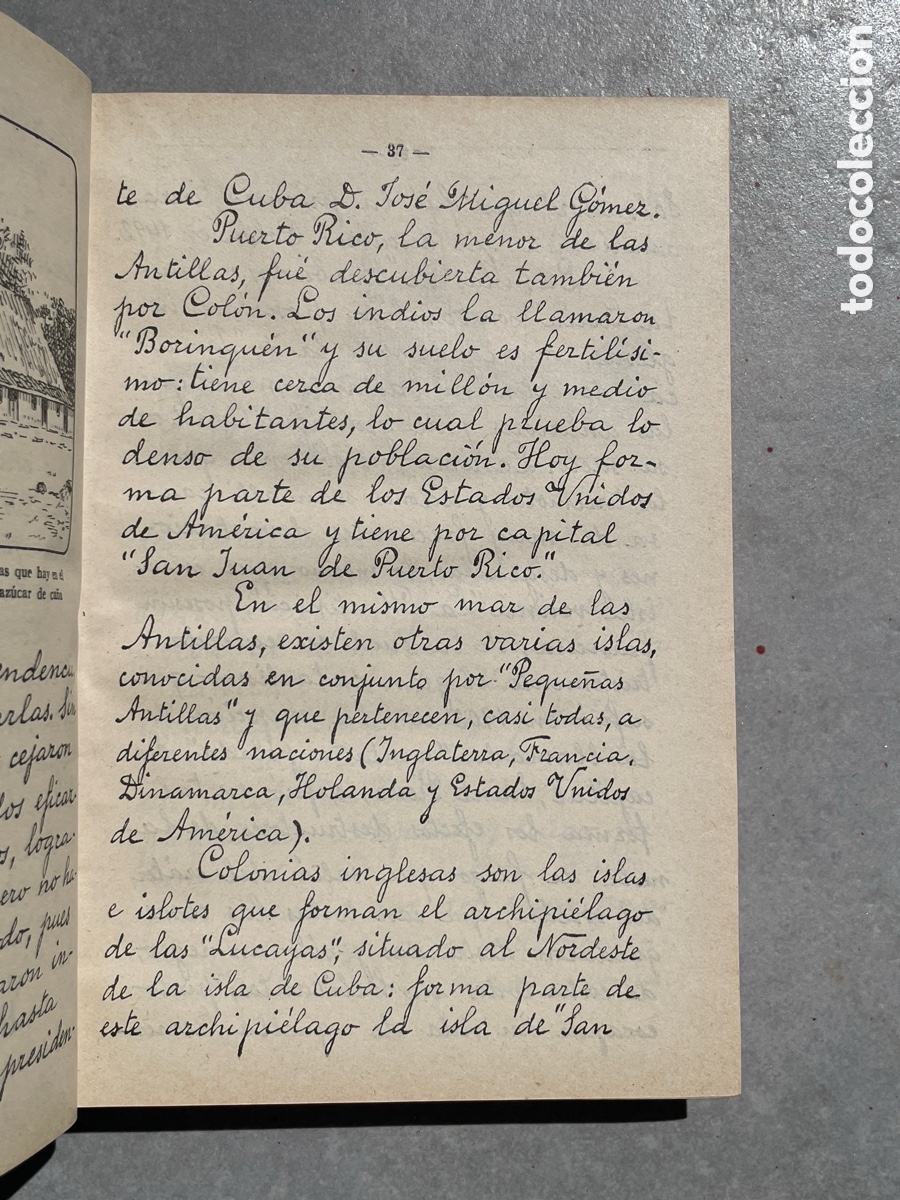 as que hay en el
azúcar de caña
endenci
erlas. Sin
cejaron
los eficar-
s, logra-
ero no ha-
odo, pues
aron in-
hasta
presiden-
— 37 —
te de Cuba D. José Miguel Gómez.
Puerto Rico, la menor de las
Antillas, fué descubierta también
por Colón. Los indios la llamaron
"Borinquén" y su suelo es fertilísi-
mo: tiene cerca de millón y medio
de habitantes, lo cual prueba lo
denso de su población. Hoy for-
ma parte de los Estados Unidos
de América y tiene por capital
"San Juan de Puerto Rico."
En el mismo mar de las
Antillas, existen otras varias islas,
conocidas en conjunto por "Pequeñas
Antillas" y que pertenecen, casi todas, a
diferentes naciones (Inglaterra, Francia,
Dinamarca, Holanda y Estados Unidos
de América).
Colonias inglesas son las islas
e islotes que forman el archipiélago
de las "Lucayas", situado al Nordeste
de la isla de Cuba: forma parte de
este archipiélago la isla de "San
todocoleccion